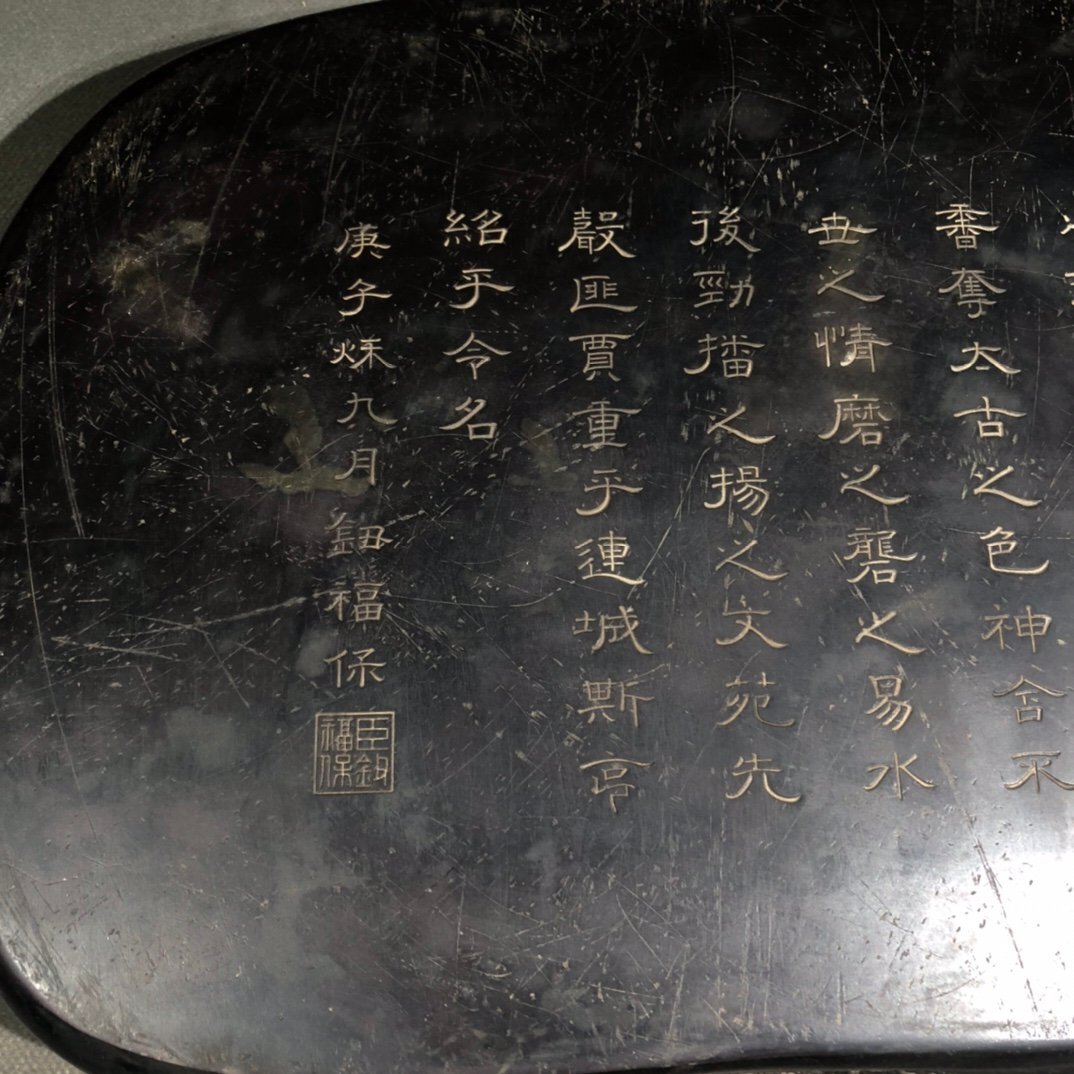 香奪太古之色神含不
世之情磨之礱之易水
後勁播之揚之文苑先
聲匪賈重乎連城斯克
紹乎令名
庚子秋九月鈕福保
臣鈕福保